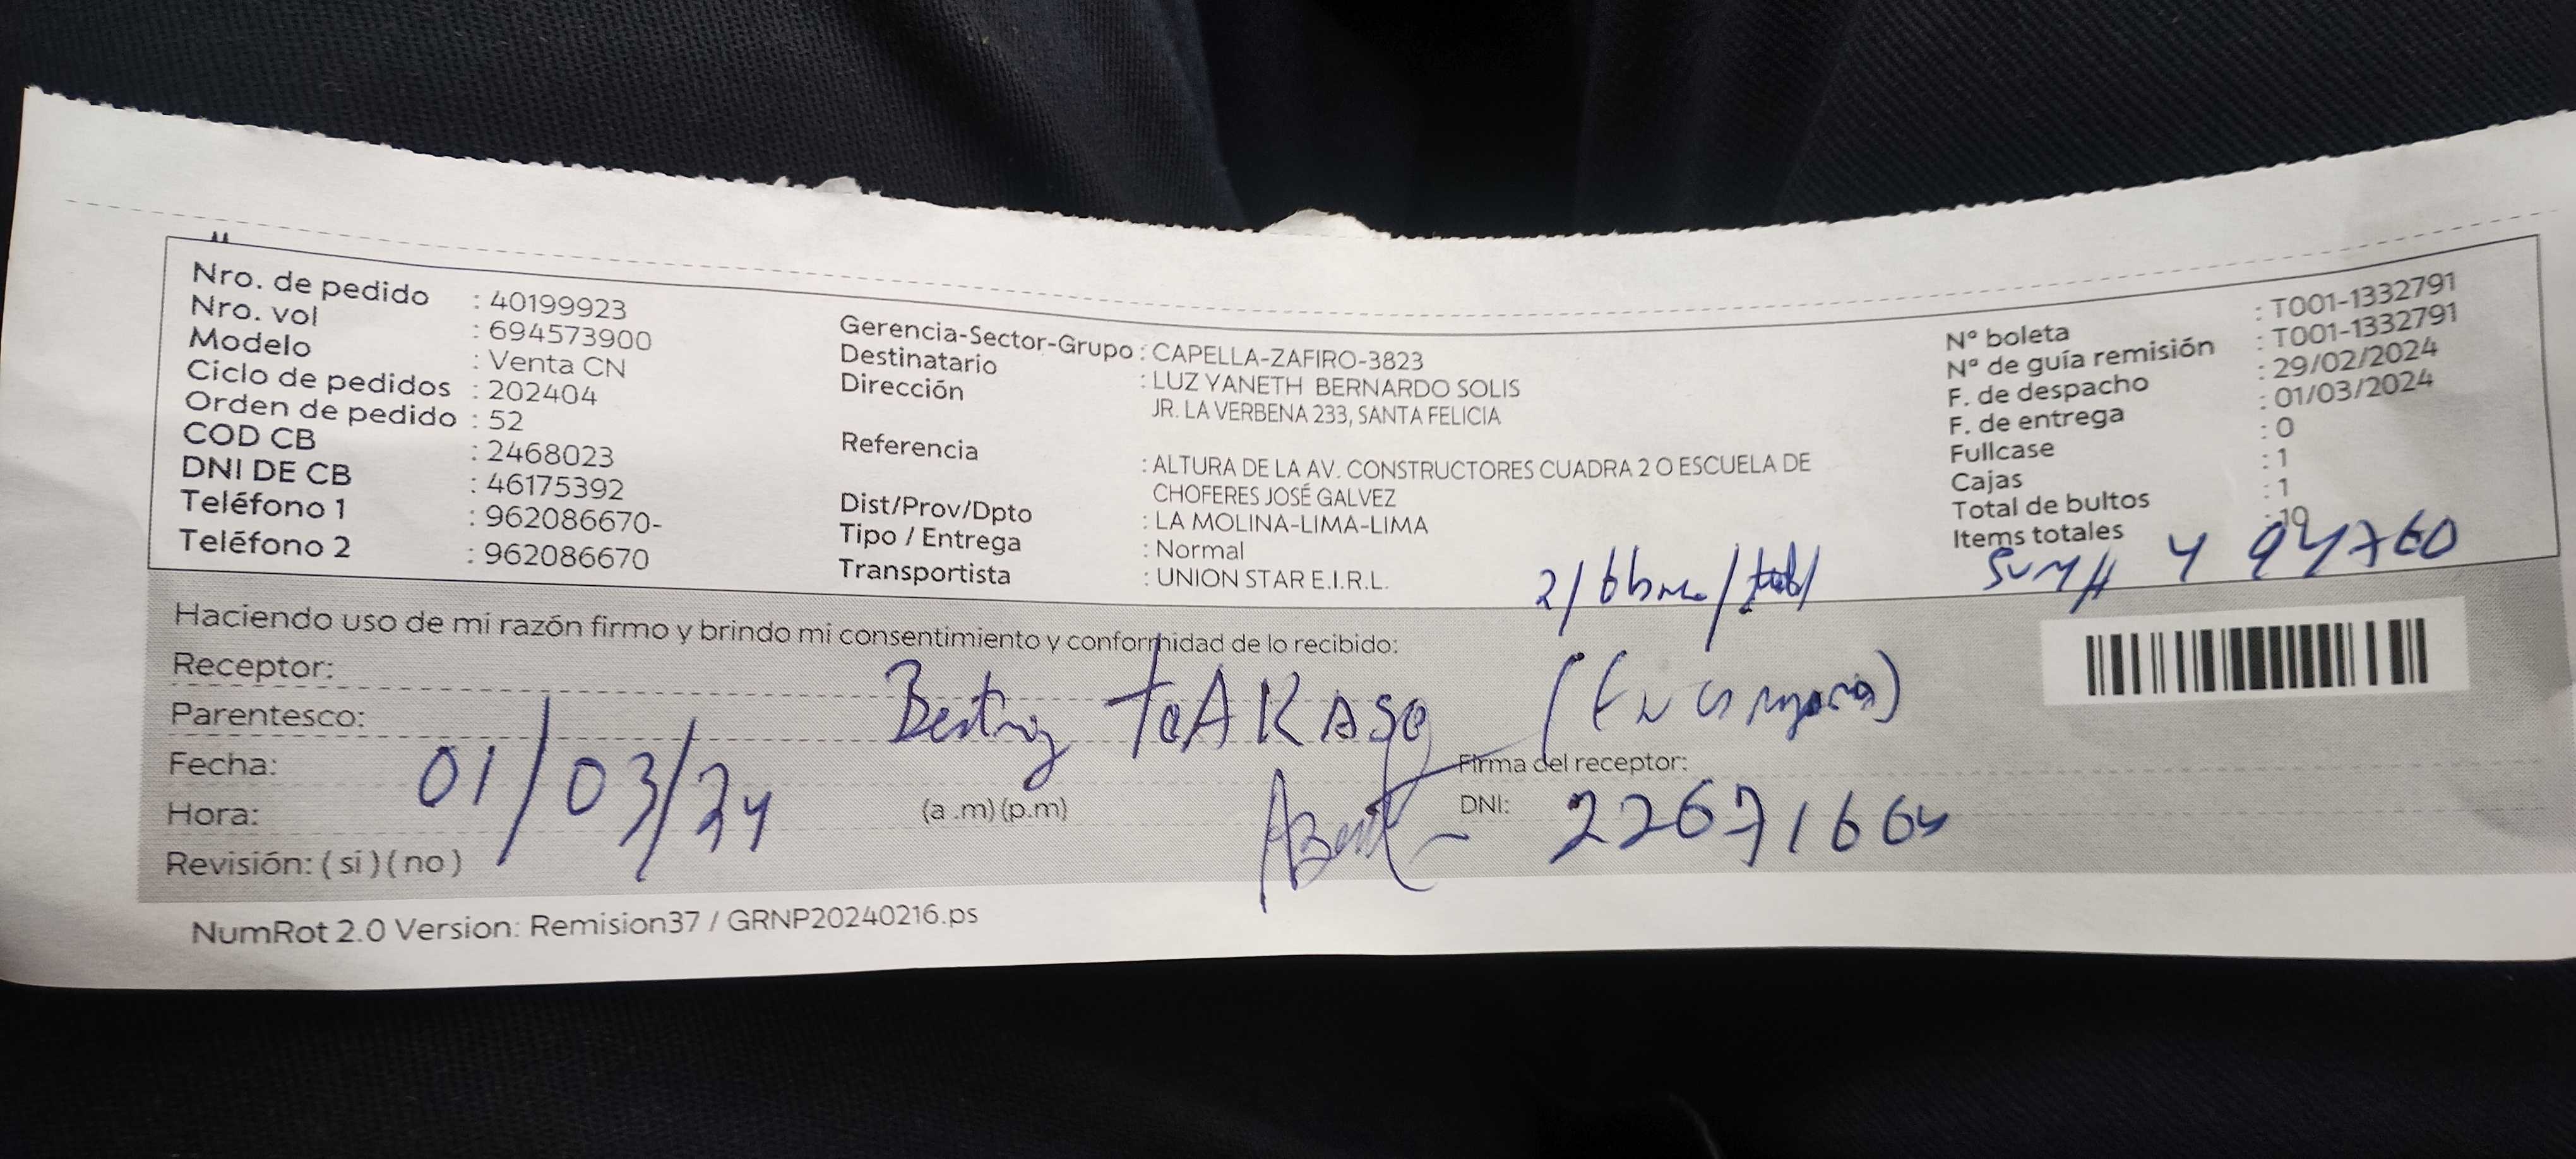 Nro. de pedido : 40199923
Nro. vol : 694573900
Modelo : Venta CN
Ciclo de pedidos : 202404
Orden de pedido : 52
COD CB : 2468023
DNI DE CB : 46175392
Teléfono 1 : 962086670-
Teléfono 2 : 962086670
Gerencia-Sector-Grupo : CAPELLA-ZAFIRO-3823
Destinatario : LUZ YANETH BERNARDO SOLIS
Dirección JR. LA VERBENA 233, SANTA FELICIA
Referencia : ALTURA DE LA AV. CONSTRUCTORES CUADRA 2 O ESCUELA DE
CHOFERES JOSÉ GALVEZ
Dist/Prov/Dpto : LA MOLINA-LIMA-LIMA
Tipo / Entrega : Normal
Transportista : UNION STAR E.I.R.L.
N° boleta : T001-1332791
N° de guía remisión : T001-1332791
F. de despacho : 29/02/2024
F. de entrega : 01/03/2024
Fullcase : 0
Cajas : 1
Total de bultos : 1
Items totales : 10
Haciendo uso de mi razón firmo y brindo mi consentimiento y conformidad de lo recibido:
Receptor:
Parentesco:
Fecha: 01/03/24
Hora: (a .m) (p.m)
Revisión: ( si ) ( no )
Firma del receptor:
DNI: 22671664
NumRot 2.0 Version: Remision37 / GRNP20240216.ps